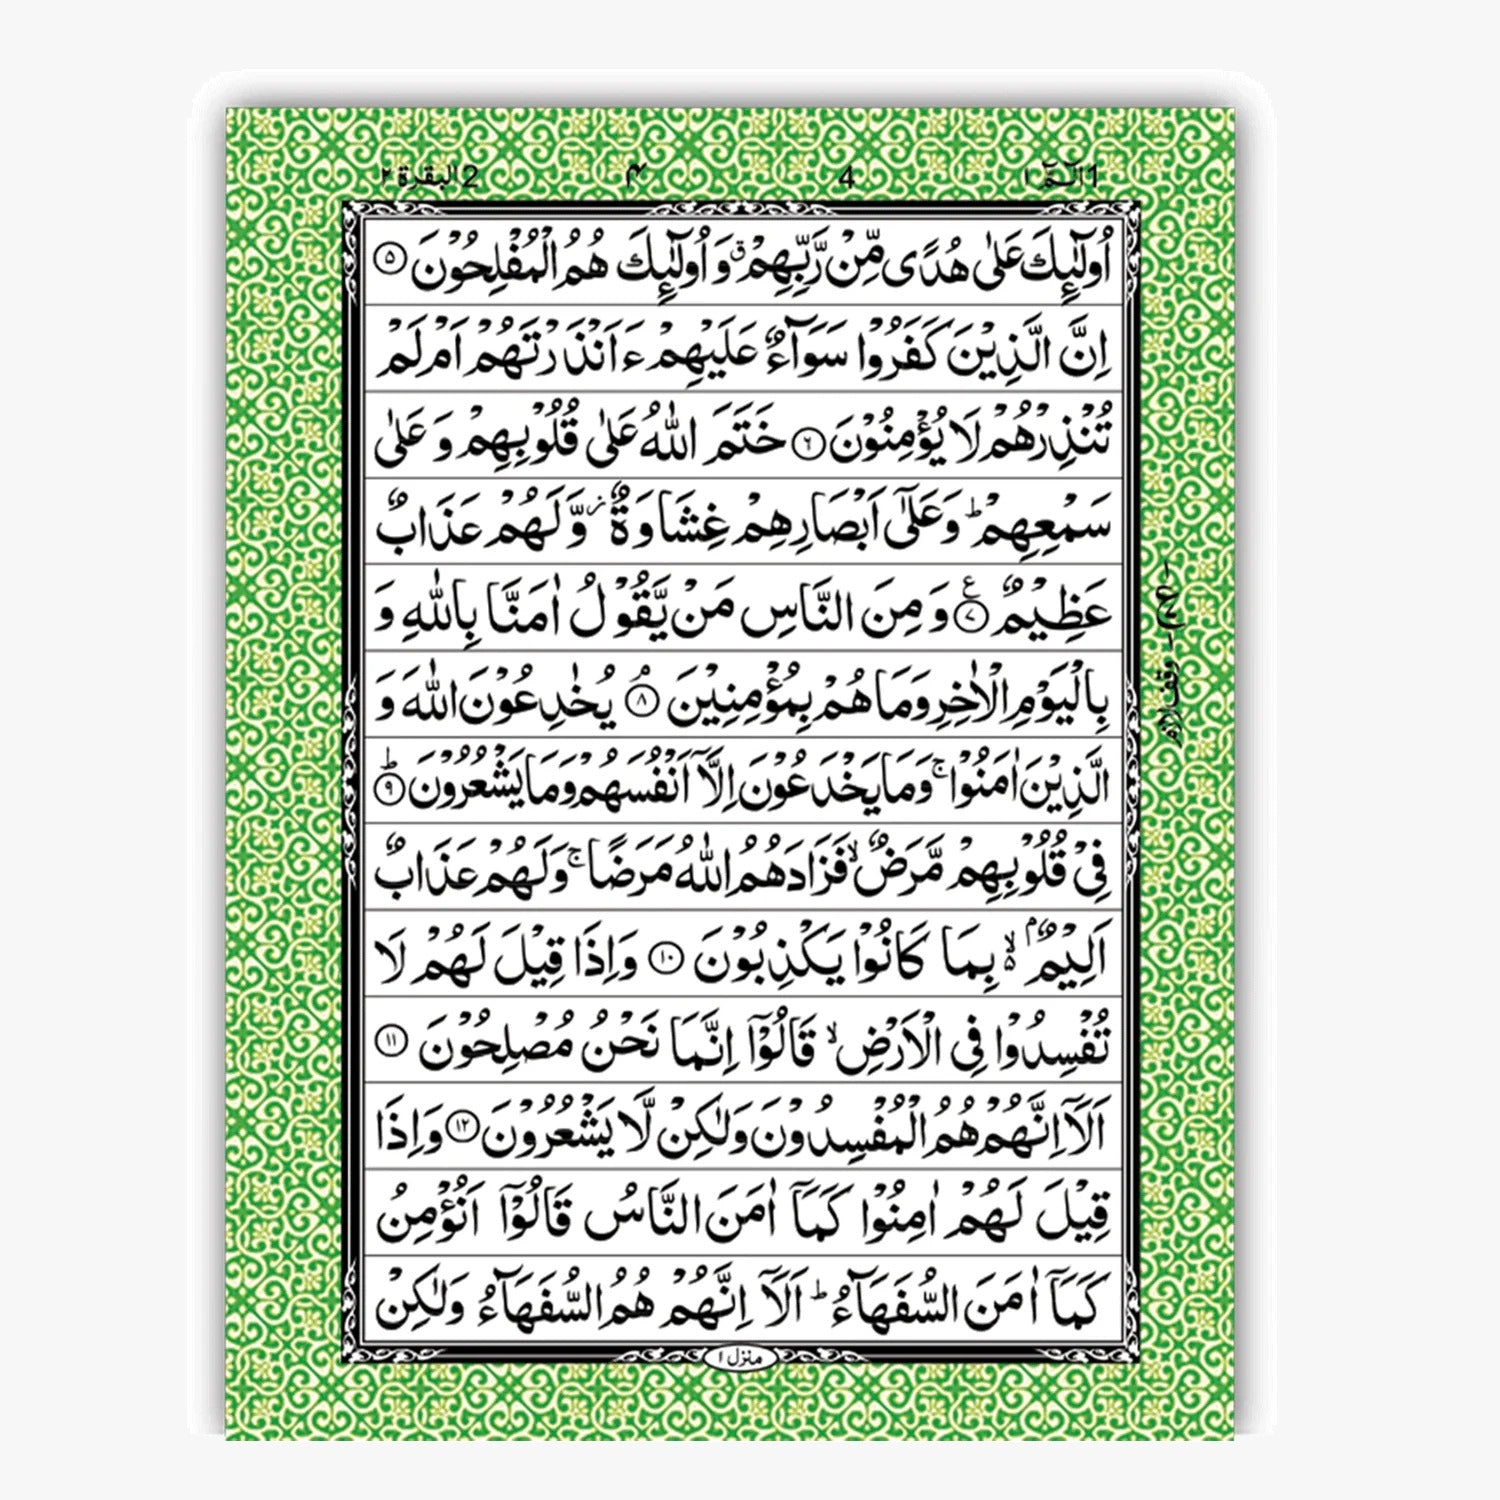 1 الٓمّٓ ١ 4 ۴ 2 البقرة ٢
اُولٰٓئِكَ عَلٰى هُدًى مِّنْ رَّبِّهِمْ ۗ وَ اُولٰٓئِكَ هُمُ الْمُفْلِحُوْنَ ۝۵
اِنَّ الَّذِيْنَ كَفَرُوْا سَوَآءٌ عَلَيْهِمْ ءَاَنْذَرْتَهُمْ اَمْ لَمْ
تُنْذِرْهُمْ لَا يُؤْمِنُوْنَ ۝۶ خَتَمَ اللّٰهُ عَلٰى قُلُوْبِهِمْ وَ عَلٰى
سَمْعِهِمْ ؕ وَ عَلٰۤى اَبْصَارِهِمْ غِشَاوَةٌ ؗ وَّ لَهُمْ عَذَابٌ
عَظِيْمٌ ۝۷ ع وَ مِنَ النَّاسِ مَنْ يَّقُوْلُ اٰمَنَّا بِاللّٰهِ وَ
بِالْيَوْمِ الْاٰخِرِ وَمَا هُمْ بِمُؤْمِنِيْنَ ۘ ۝۸ يُخٰدِعُوْنَ اللّٰهَ وَ
الَّذِيْنَ اٰمَنُوْا ۚ وَمَا يَخْدَعُوْنَ اِلَّاۤ اَنْفُسَهُمْ وَمَا يَشْعُرُوْنَ ؕ ۝۹
فِيْ قُلُوْبِهِمْ مَّرَضٌ ۙ فَزَادَهُمُ اللّٰهُ مَرَضًا ۚ وَلَهُمْ عَذَابٌ
اَلِيْمٌۢ ۙ۵ بِمَا كَانُوْا يَكْذِبُوْنَ ۝۱۰ وَاِذَا قِيْلَ لَهُمْ لَا
تُفْسِدُوْا فِى الْاَرْضِ ۙ قَالُوْۤا اِنَّمَا نَحْنُ مُصْلِحُوْنَ ۝۱۱
اَلَاۤ اِنَّهُمْ هُمُ الْمُفْسِدُوْنَ وَلٰكِنْ لَّا يَشْعُرُوْنَ ۝۱۲ وَاِذَا
قِيْلَ لَهُمْ اٰمِنُوْا كَمَاۤ اٰمَنَ النَّاسُ قَالُوْۤا اَنُؤْمِنُ
كَمَاۤ اٰمَنَ السُّفَهَآءُ ؕ اَلَاۤ اِنَّهُمْ هُمُ السُّفَهَآءُ وَلٰكِنْ
منزل ۱
وقف لازم